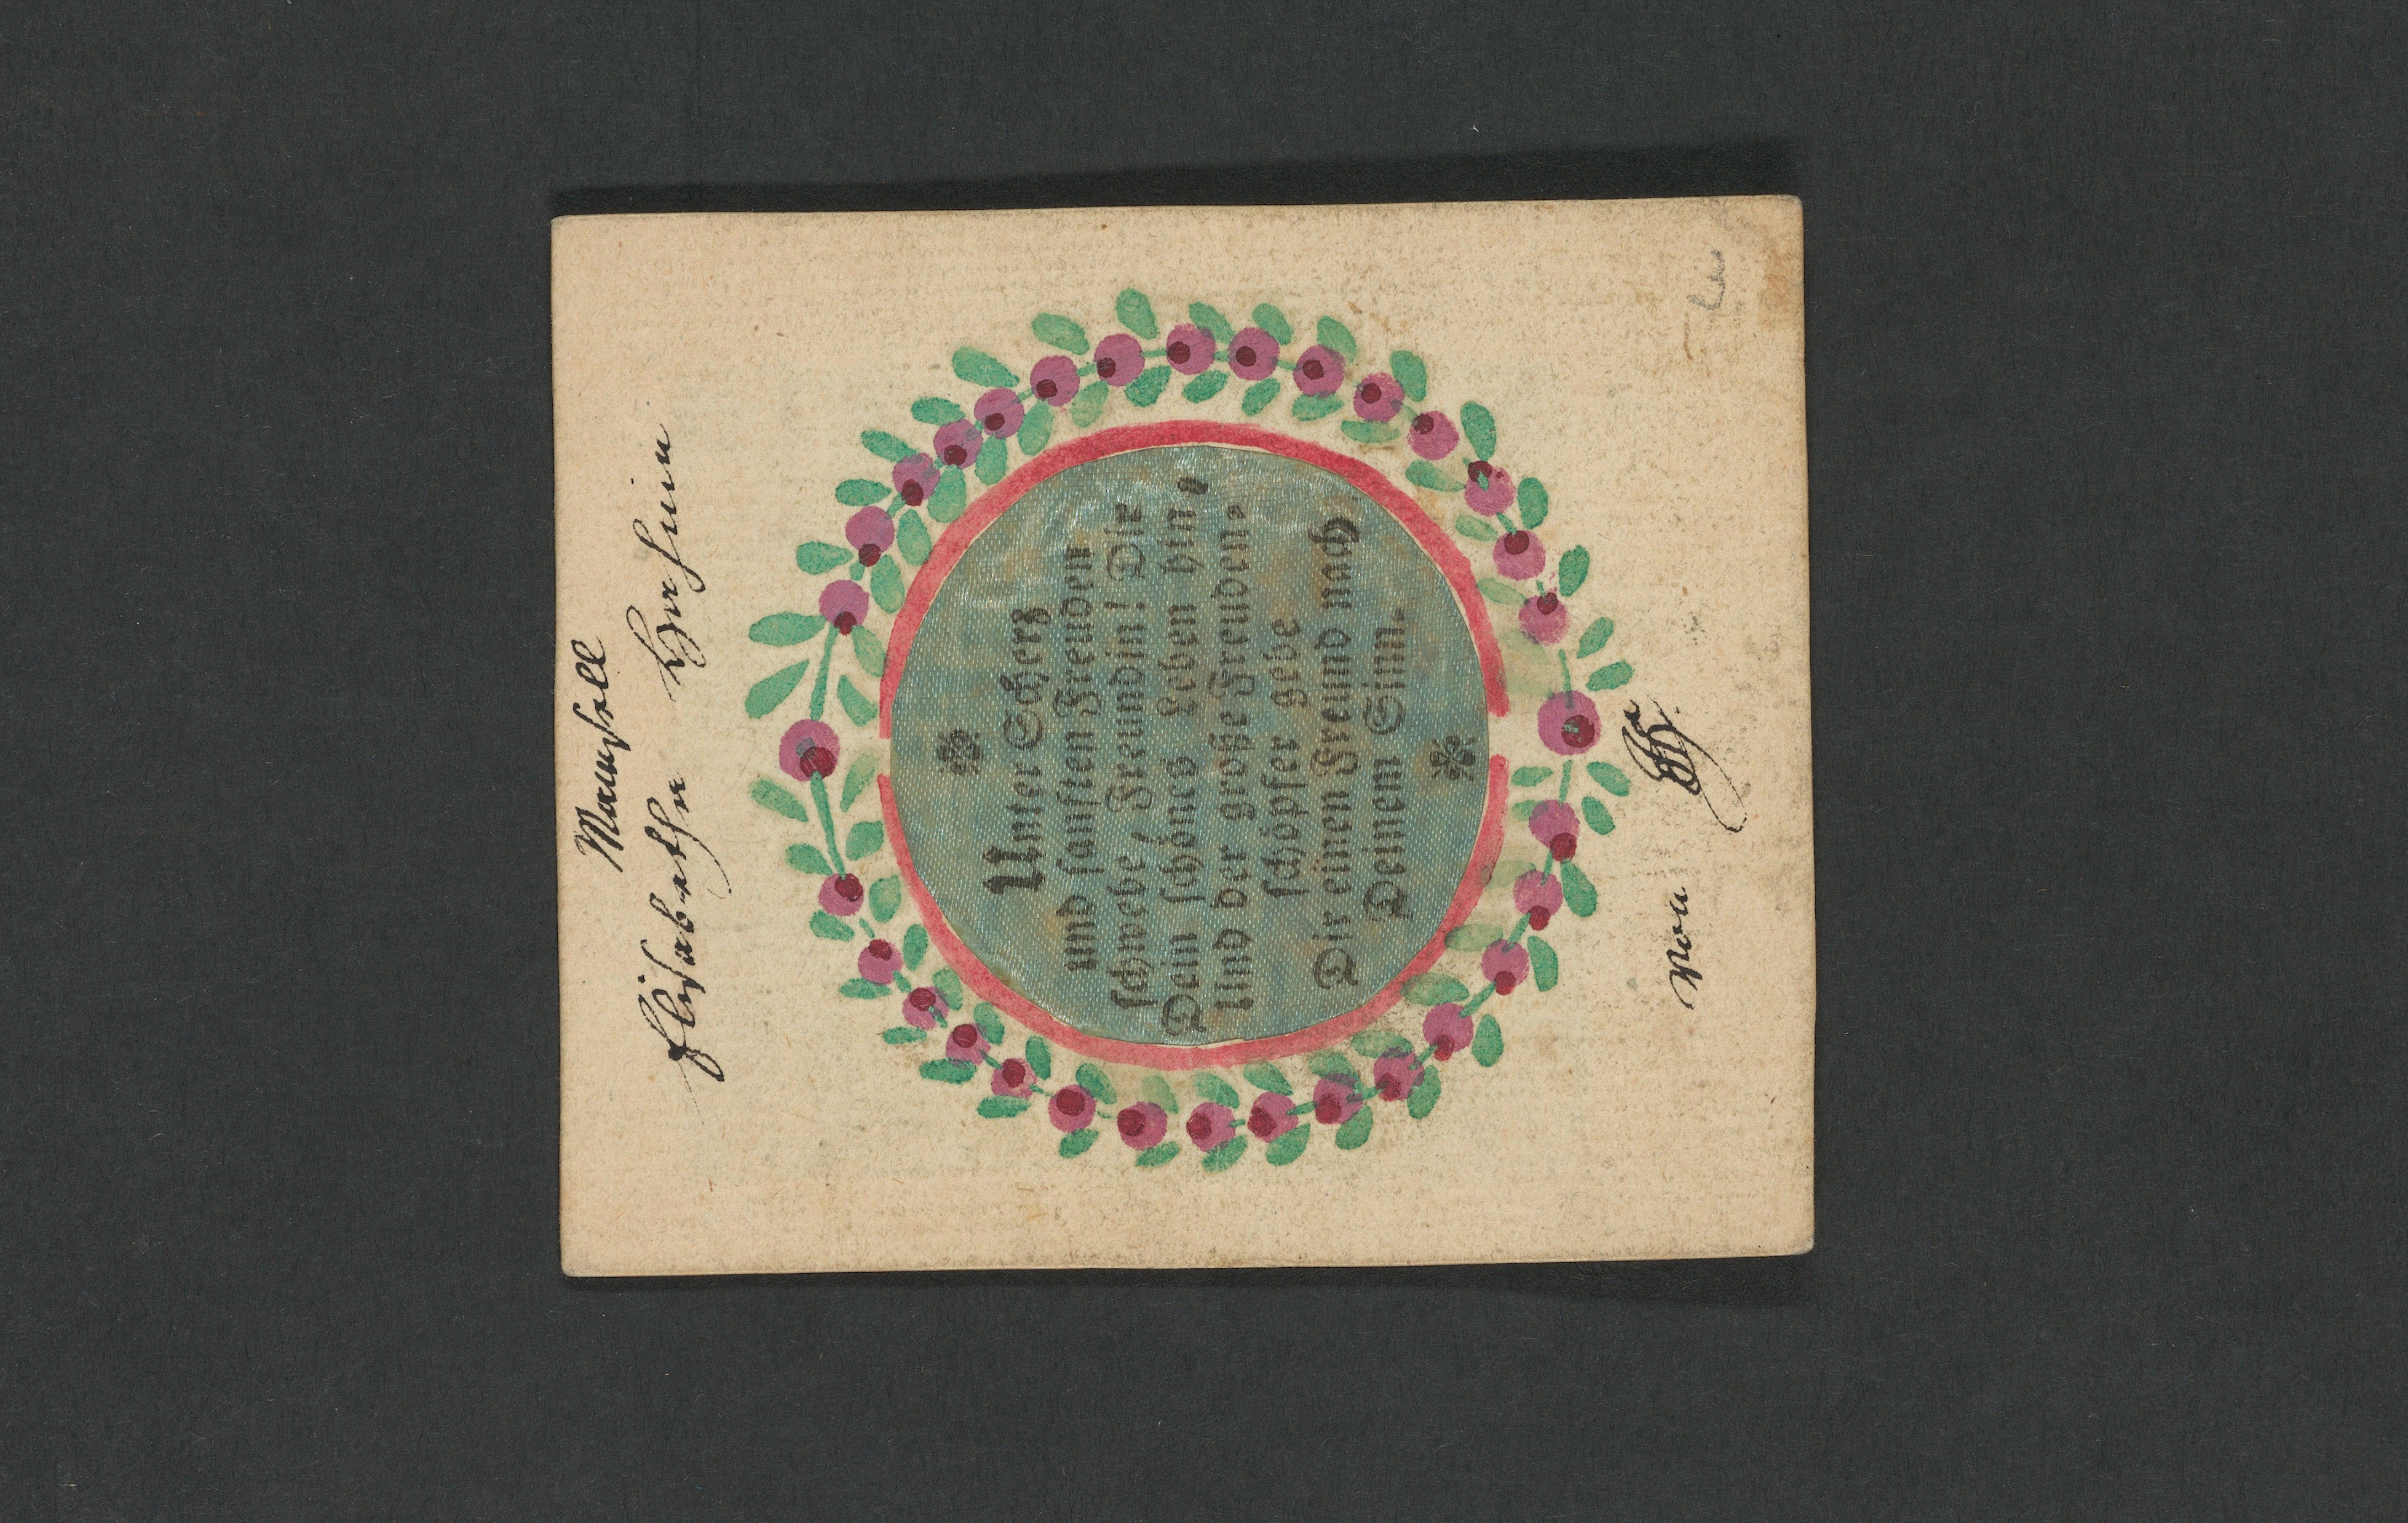 Mamsell
Elisabetha
Unter Scherz
und sanften Freuden
schwebe, Freundin! Dir
Dein schönes Leben hin,
Und der große Freuden-
schöpfer gebe
Dir einen Freund nach
Deinem Sinn.
von